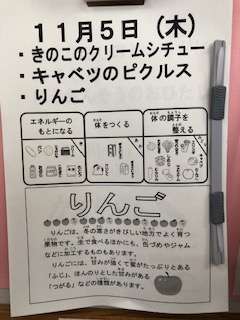 １１月５日（木）
・きのこのクリームシチュー
・キャベツのピクルス
・りんご
エネルギーの
もとになる
体をつくる
体の調子を
整える
りんご
りんごは、冬の寒さがきびしい地方でよく育つ
果物です。生で食べるほかにも、色づめやジャム
などに加工するものもあります。
りんごには、甘みが強くて蜜がたっぷりとある
「ふじ」、ほんのりとした甘みがある
「つがる」などの種類があります。